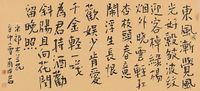 東風漸覺風
光好縠皺波紋
迎客棹綠楊
烟外曉雲輕紅
杏枝頭春意
鬧浮生長恨
歡娛少肯愛
千金輕一笑
為君持酒勸
斜陽且向花間
留晚照